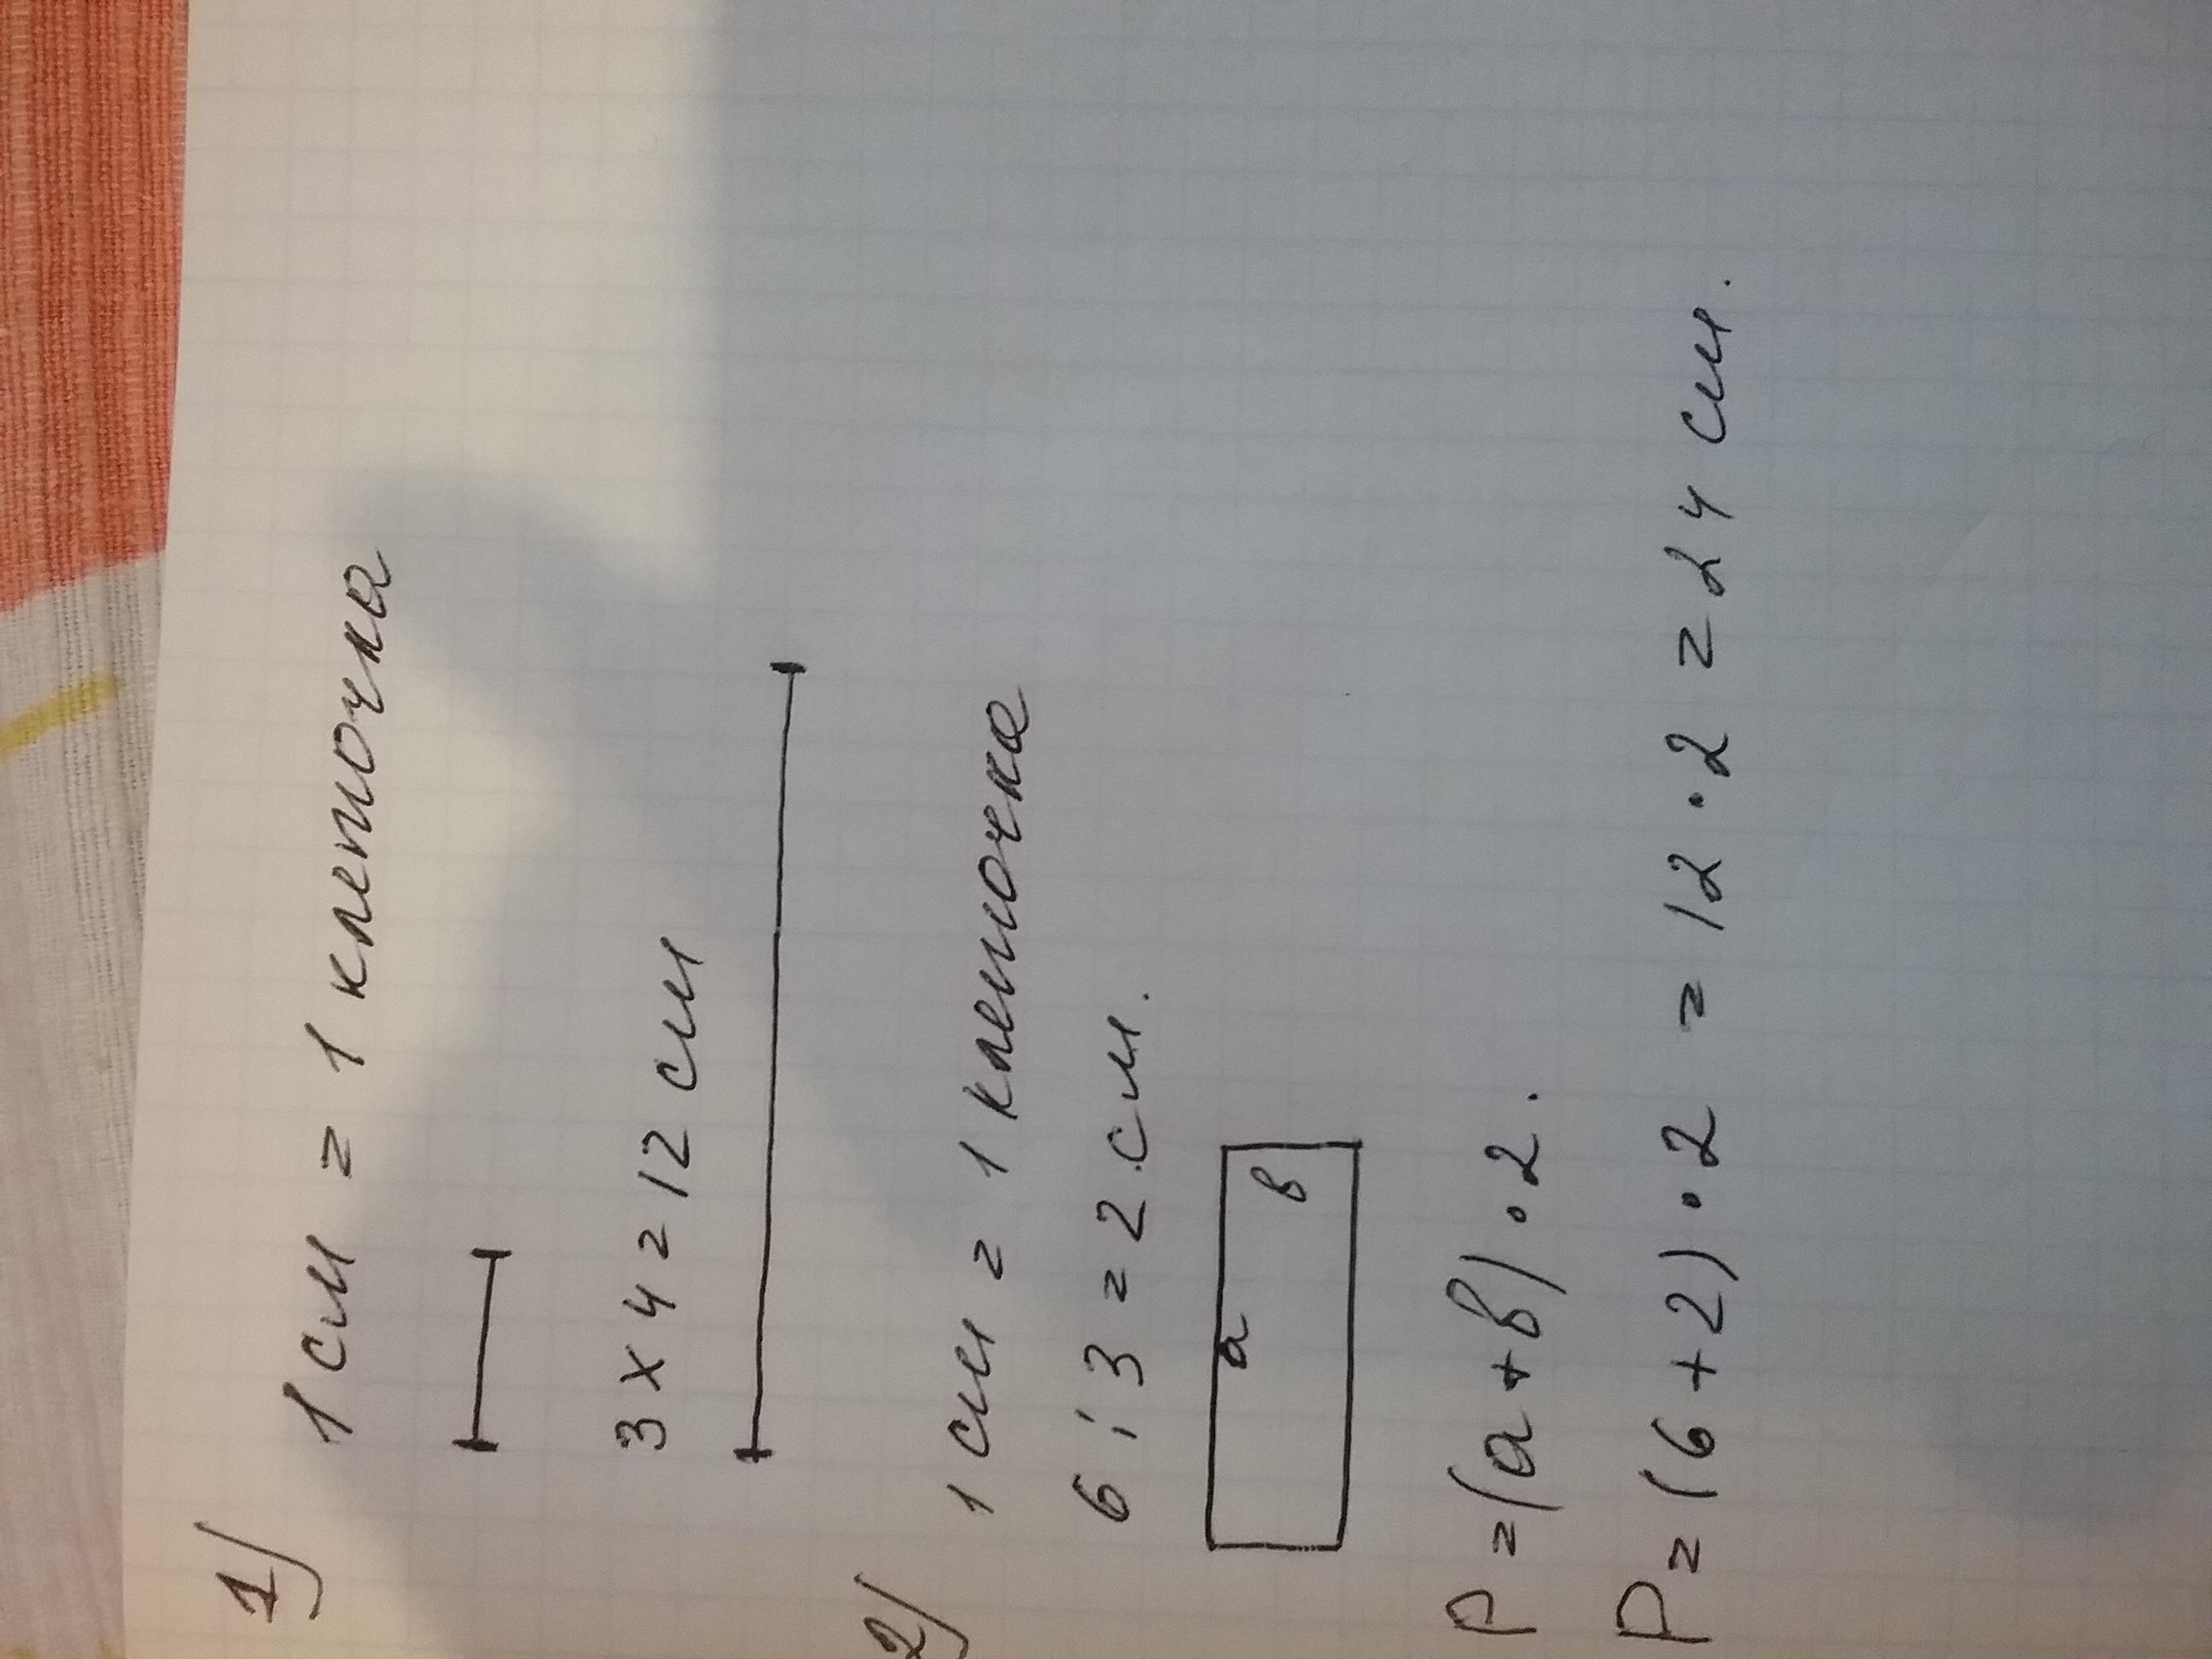 1)
1 см = 1 клеточка
3 x 4 = 12 см
2)
1 см = 1 клеточка
6 : 3 = 2 см.
а
в
P = (а + в) · 2.
P = (6 + 2) · 2 = 12 · 2 = 24 см.